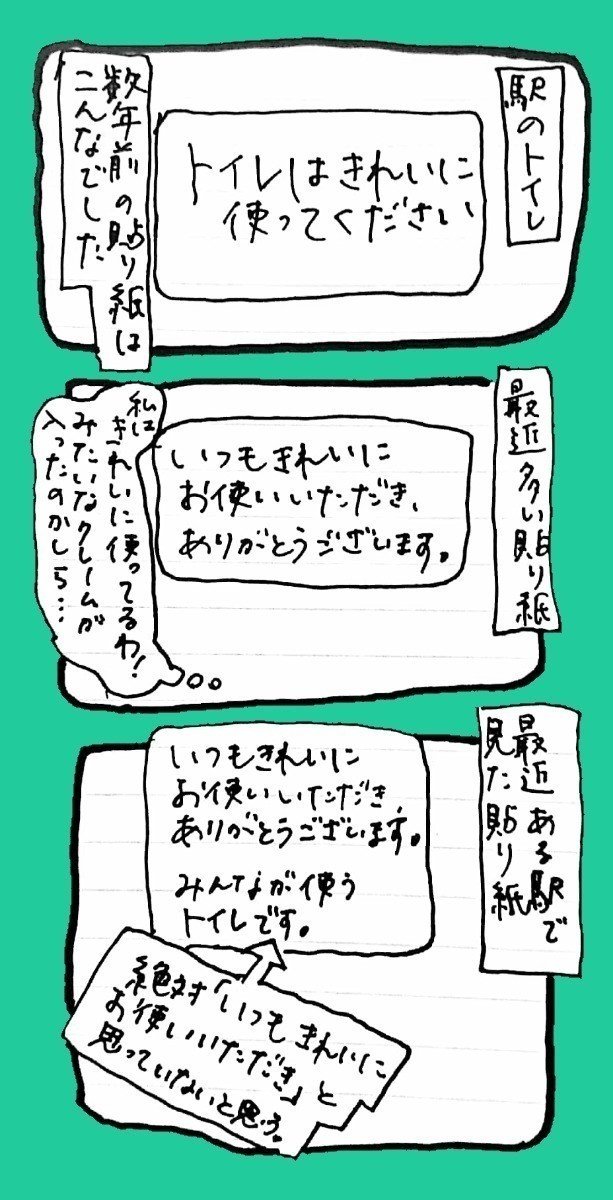 駅のトイレ
トイレはきれいに
使ってください
数年前の貼り紙は
こんなでした
最近多い貼り紙
いつもきれいに
お使いいただき、
ありがとうございます。
私は
きれいに使ってるわ!
みたいなクレームが
入ったのかしら…
最近ある駅で
見た貼り紙
いつもきれいに
お使いいただき、
ありがとうございます。
みんなが使う
トイレです。
絶対「いつもきれいに
お使いいただき」と
思っていないと思う。